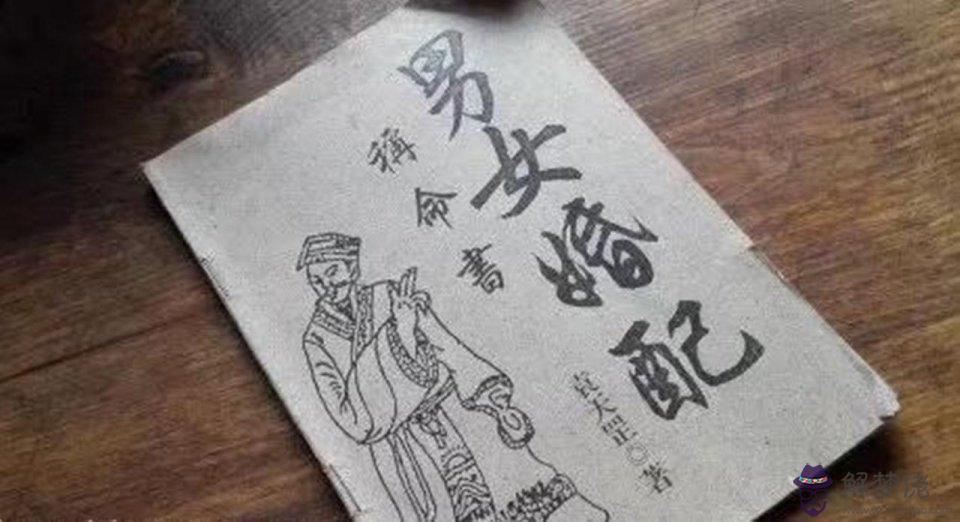 男女婚配
稱命書
袁天罡○著
解梦佬